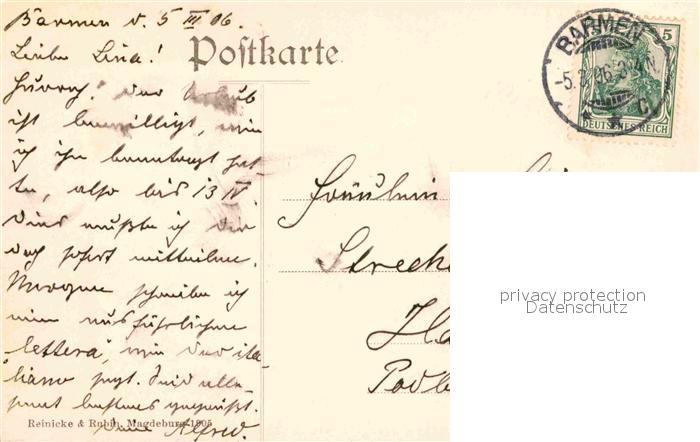 Barmen d. 5 III 06.
Liebe Lina!
Hurrah! Der Urlaub
ist bewilligt, wie
ich ihn beantragt hat
te, also bis 13 IV.
Dies mußte ich dir
doch sofort mitteilen.
Morgen schreibe ich
einen ausführlichen
"lettera", wie der ita-
liano sagt. Seid alle-
samt bestens gegrüßt.
Dein Alfred.
Reinicke & Rubin, Magdeburg 1905
Postkarte.
BARMEN
-5.3.06.3-4N
* * C
5
DEUTSCHES REICH
Fräulein
Strecke
Ha
Podb
privacy protection
Datenschutz